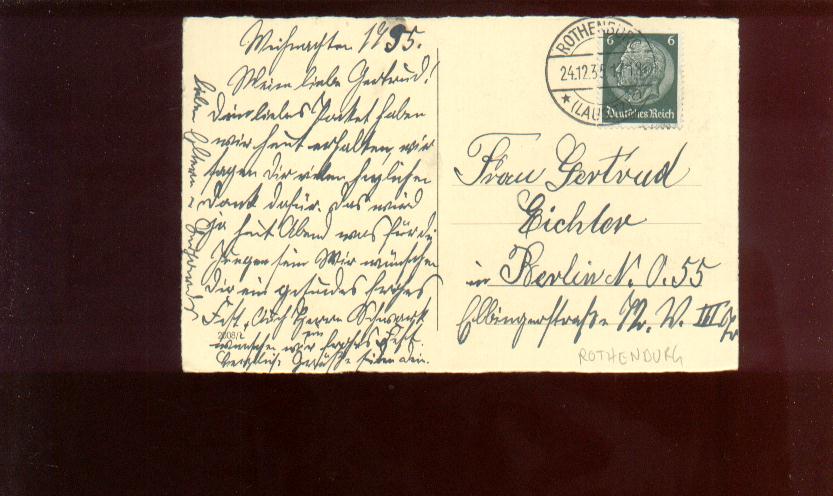 Weihnachten 1935.
Meine liebe Gertrud!
dein liebes Packet haben
wir heut erhalten, wir
sagen Dir vielen herzlichen
Dank dafür. Das wird
ja heut Abend was für die
Jungen sein Wir wünschen
Dir ein gesundes frohes
Fest. Auch Herrn
wünschen wir ein frohes Fest.
Herzliche Grüße
2608/1
ROTHENBURG
24.12.35
(LAU
6 6
Deutsches Reich
Frau Gertrud
Eichler
in Berlin N. O. 55
Elbingerstraße 72. V. III
ROTHENBURG